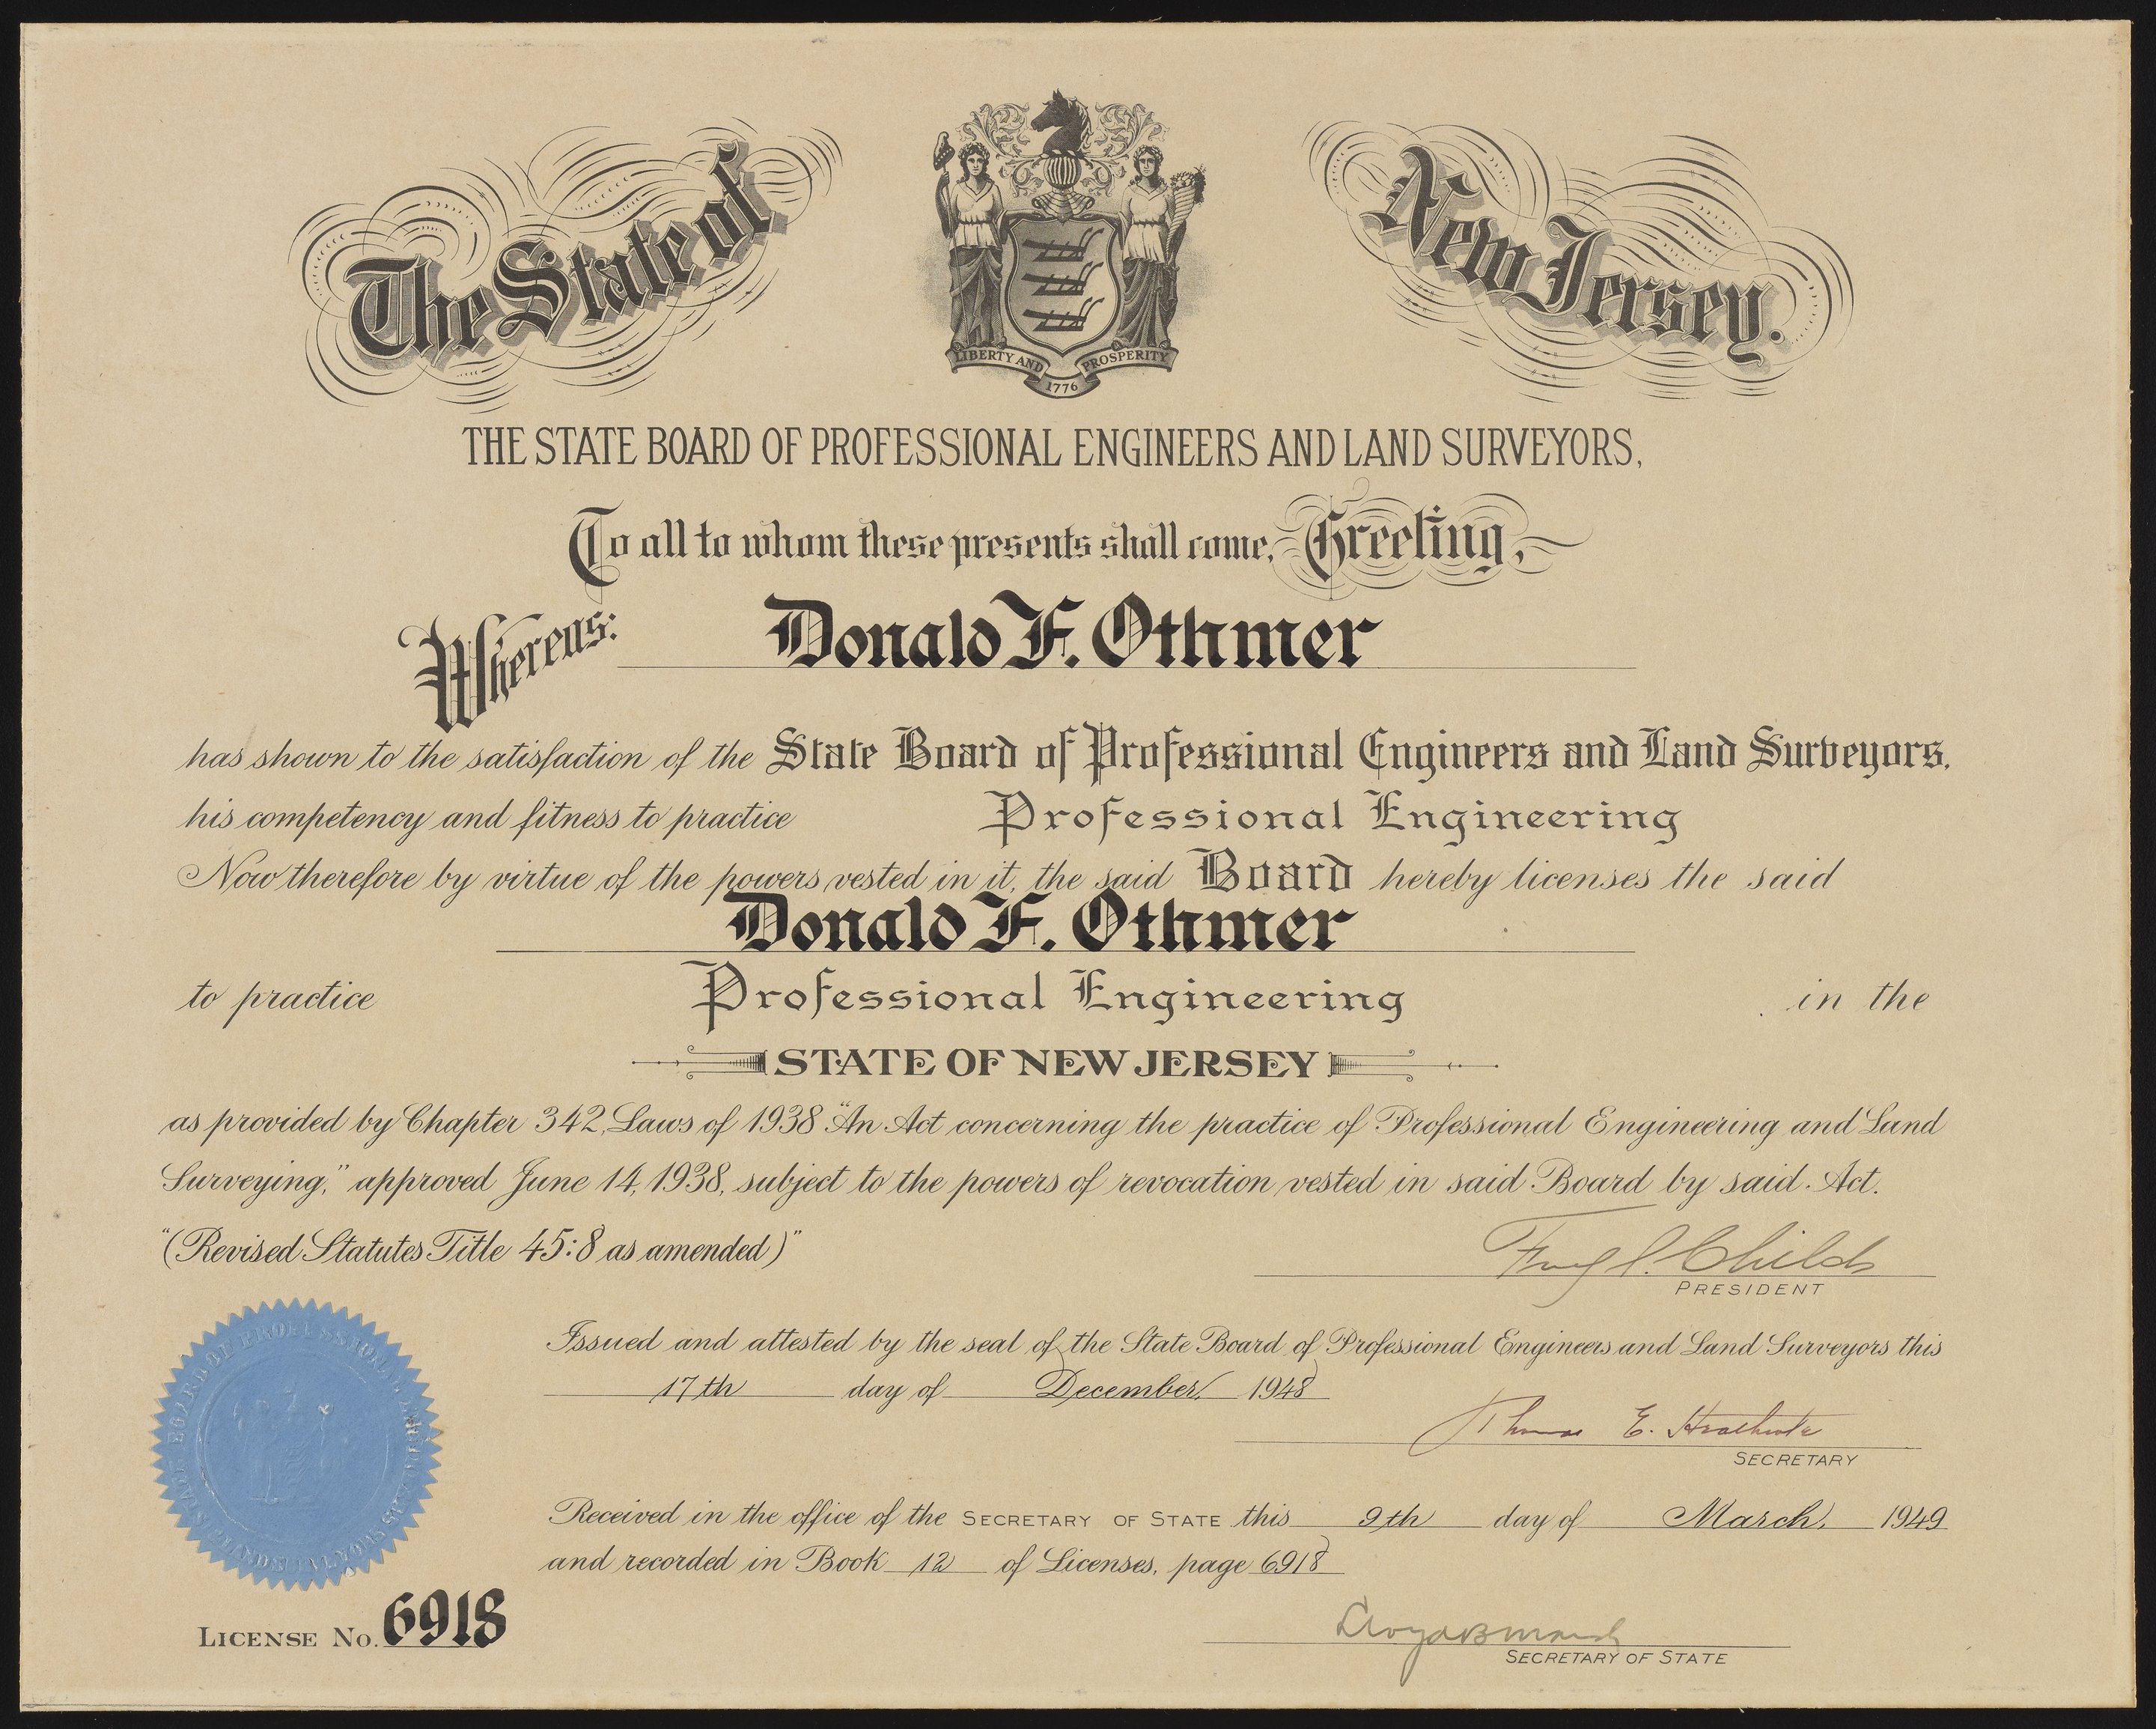 The State of New Jersey.
LIBERTY AND PROSPERITY
1776
THE STATE BOARD OF PROFESSIONAL ENGINEERS AND LAND SURVEYORS,
To all to whom these presents shall come, Greeting,
Whereas: Donald F. Othmer
has shown to the satisfaction of the State Board of Professional Engineers and Land Surveyors,
his competency and fitness to practice Professional Engineering
Now therefore by virtue of the powers vested in it, the said Board hereby licenses the said
Donald F. Othmer
to practice Professional Engineering in the
STATE OF NEW JERSEY
as provided by Chapter 342, Laws of 1938 "An Act concerning the practice of Professional Engineering and Land
Surveying," approved June 14, 1938, subject to the powers of revocation vested in said Board by said Act.
"(Revised Statutes Title 45:8 as amended)"
Childs
PRESIDENT
Issued and attested by the seal of the State Board of Professional Engineers and Land Surveyors this
17th day of December 1948
Thomas E.
SECRETARY
Received in the office of the SECRETARY OF STATE this 9th day of March, 1949
and recorded in Book 12 of Licenses, page 6918
LICENSE No. 6918
Lloyd B Marsh
SECRETARY OF STATE